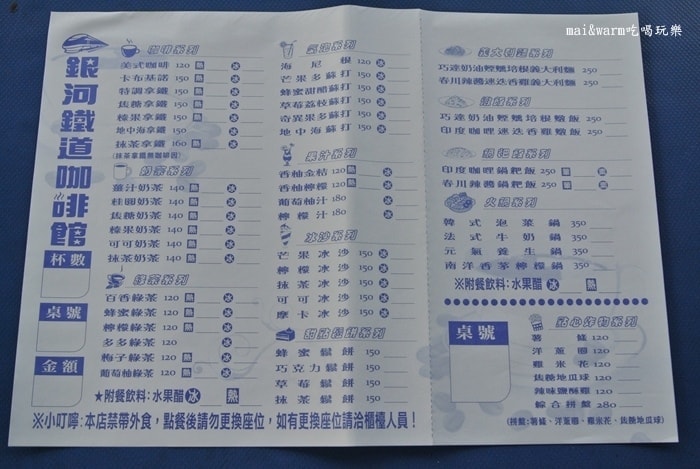 mai&warm吃喝玩樂
銀河鐵道咖啡館
杯數
桌號
金額
咖啡系列
美式咖啡 120 熱 冰
卡布基諾 150 熱 冰
特調拿鐵 150 熱 冰
焦糖拿鐵 150 熱 冰
榛果拿鐵 150 熱 冰
地中海拿鐵 150 熱 冰
抹茶拿鐵 160 熱 冰
奶茶系列
薑汁奶茶 140 熱 冰
桂圓奶茶 140 熱 冰
焦糖奶茶 140 熱 冰
榛果奶茶 140 熱 冰
可可奶茶 140 熱 冰
抹茶奶茶 140 熱 冰
綠茶系列
百香綠茶 120 熱 冰
蜂蜜綠茶 120 熱 冰
檸檬綠茶 120 熱 冰
多多綠茶 120 冰
梅子綠茶 120 熱 冰
葡萄柚綠茶 120 熱 冰
★附餐飲料:水果醋 冰 熱
氣泡系列
海尼根 120
芒果多蘇打 150
蜂蜜甜醋蘇打 150
草莓荔枝蘇打 150
奇異果多蘇打 150
地中海蘇打 150
果汁系列
香柚金桔 120 熱 冰
香柚檸檬 120 熱 冰
葡萄柚汁 180
檸檬汁 180
冰沙系列
芒果冰沙 150
檸檬冰沙 150
抹茶冰沙 150
可可冰沙 150
摩卡冰沙 150
甜點鬆餅系列
蜂蜜鬆餅 150
巧克力鬆餅 150
草莓鬆餅 150
抹茶鬆餅 150
※小叮嚀:本店禁帶外食，點餐後請勿更換座位，如有更換座位請洽櫃檯人員！
義大利麵系列
巧達奶油螳螂培根義大利麵 250
春川辣醬迷迭香雞義大利麵 250
燉飯系列
巧達奶油螳螂培根燉飯 250
印度咖哩迷迭香雞燉飯 250
鍋粑飯系列
印度咖哩鍋粑飯 250
春川辣醬鍋粑飯 250
火鍋系列
韓式泡菜鍋 350
法式牛奶鍋 350
元氣養生鍋 350
南洋香茅檸檬鍋 350
※附餐飲料:水果醋 冰 熱
桌號
點心炸物系列
薯條 120
洋蔥圈 120
雞米花 120
焦糖地瓜球 120
辣味鹽酥雞 120
綜合拼盤 280
(拼盤:薯條、洋蔥圈、雞米花、焦糖地瓜球)